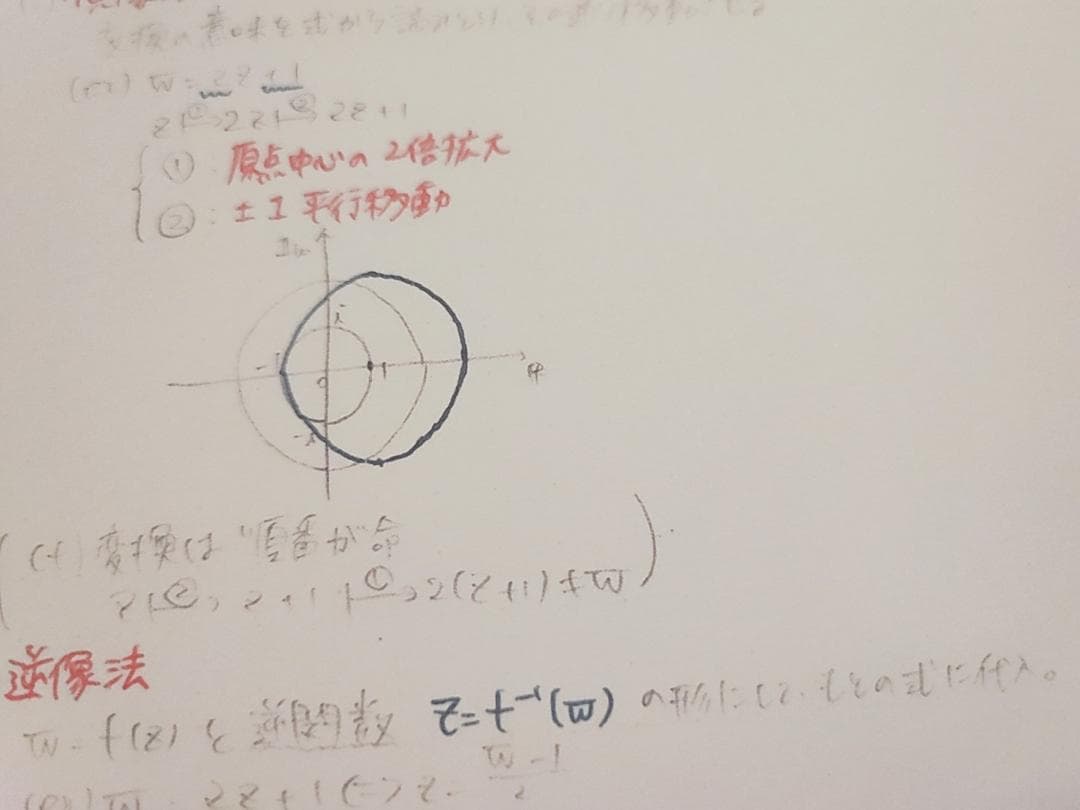 変換の意味を式から読みとり、
(ex) w = 2z + 1
z ①↦ 2z ②↦ 2z + 1
① : 原点中心の2倍拡大
② : ±1平行移動
Im
i
-1 0 1
-i
(cf) 変換は "順番が命
z ②↦ z + 1 ①↦ 2(z+1) ≠ w
逆像法
w = f(z) を逆関数 z = f⁻¹(w) の形にして、もとの式に代入。
(ex) w = 2z + 1 ⇔ z = w - 1 / 2